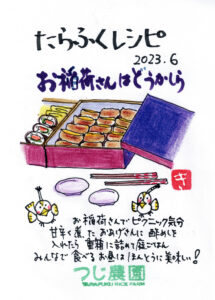 たらふくレシピ
2023.6
お稲荷さんはどうかしら
き
お稲荷さんでピクニック気分
甘辛く煮たおあげさんに酢めしを
入れたら重箱に詰めて庭ごはん
みんなで食べるお昼はほんとうに美味しい!
つじ農園
TSURAFUKU RICE FARM